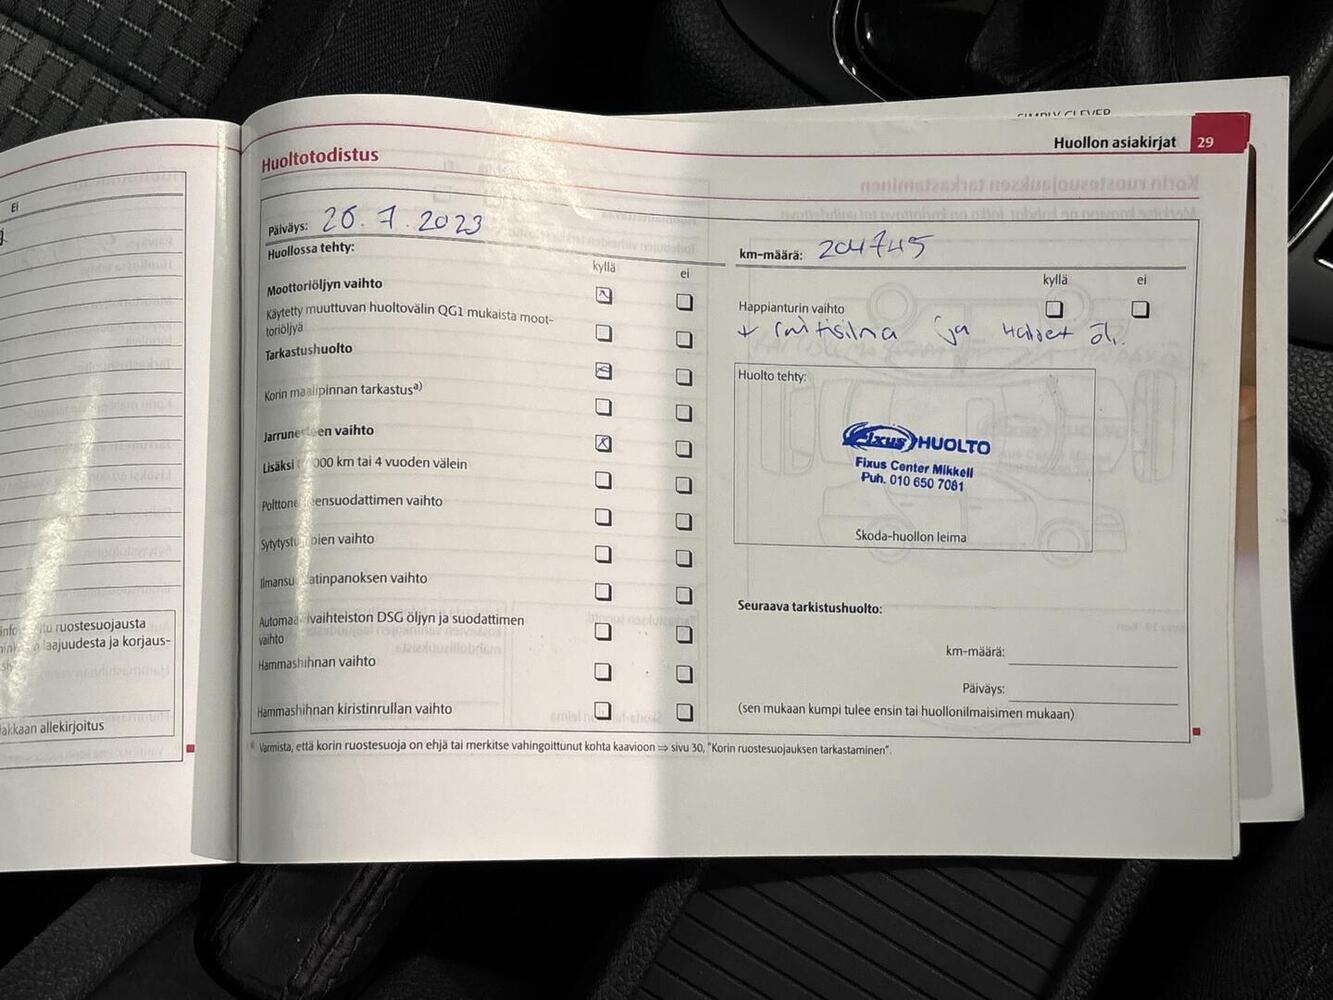 SIMPLY CLEVER
Huollon asiakirjat 29
Huoltotodistus
Päiväys: 26.7.2023
Huollossa tehty:
kyllä ei
Moottoriöljyn vaihto
Käytetty muuttuvan huoltovälin QG1 mukaista moot-
toriöljyä
Tarkastushuolto
Korin maalipinnan tarkastusa)
Jarrunesteen vaihto
Lisäksi 000 km tai 4 vuoden välein
Polttoneensuodattimen vaihto
Sytytystulppien vaihto
Ilmansuodatinpanoksen vaihto
Automaattivaihteiston DSG öljyn ja suodattimen
vaihto
Hammashihnan vaihto
Hammashihnan kiristinrullan vaihto
km-määrä: 204745
kyllä ei
Happianturin vaihto
+ raitisilma ja öl.
Huolto tehty:
Fixus HUOLTO
Fixus Center Mikkeli
Puh. 010 650 7081
Škoda-huollon leima
Seuraava tarkistushuolto:
km-määrä:
Päiväys:
(sen mukaan kumpi tulee ensin tai huollonilmaisimen mukaan)
a Varmista, että korin ruostesuoja on ehjä tai merkitse vahingoittunut kohta kaavioon ⇒ sivu 30, "Korin ruostesuojauksen tarkastaminen".
Ei
ruostesuojausta
laajuudesta ja korjaus-
akkaan allekirjoitus